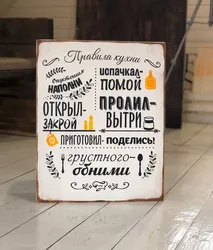 Правила кухни
Опустошил-
наполни
испачкал-
помой
открыл-
закрой
пролил-
вытри
приготовил- поделись!
грустного-
обними